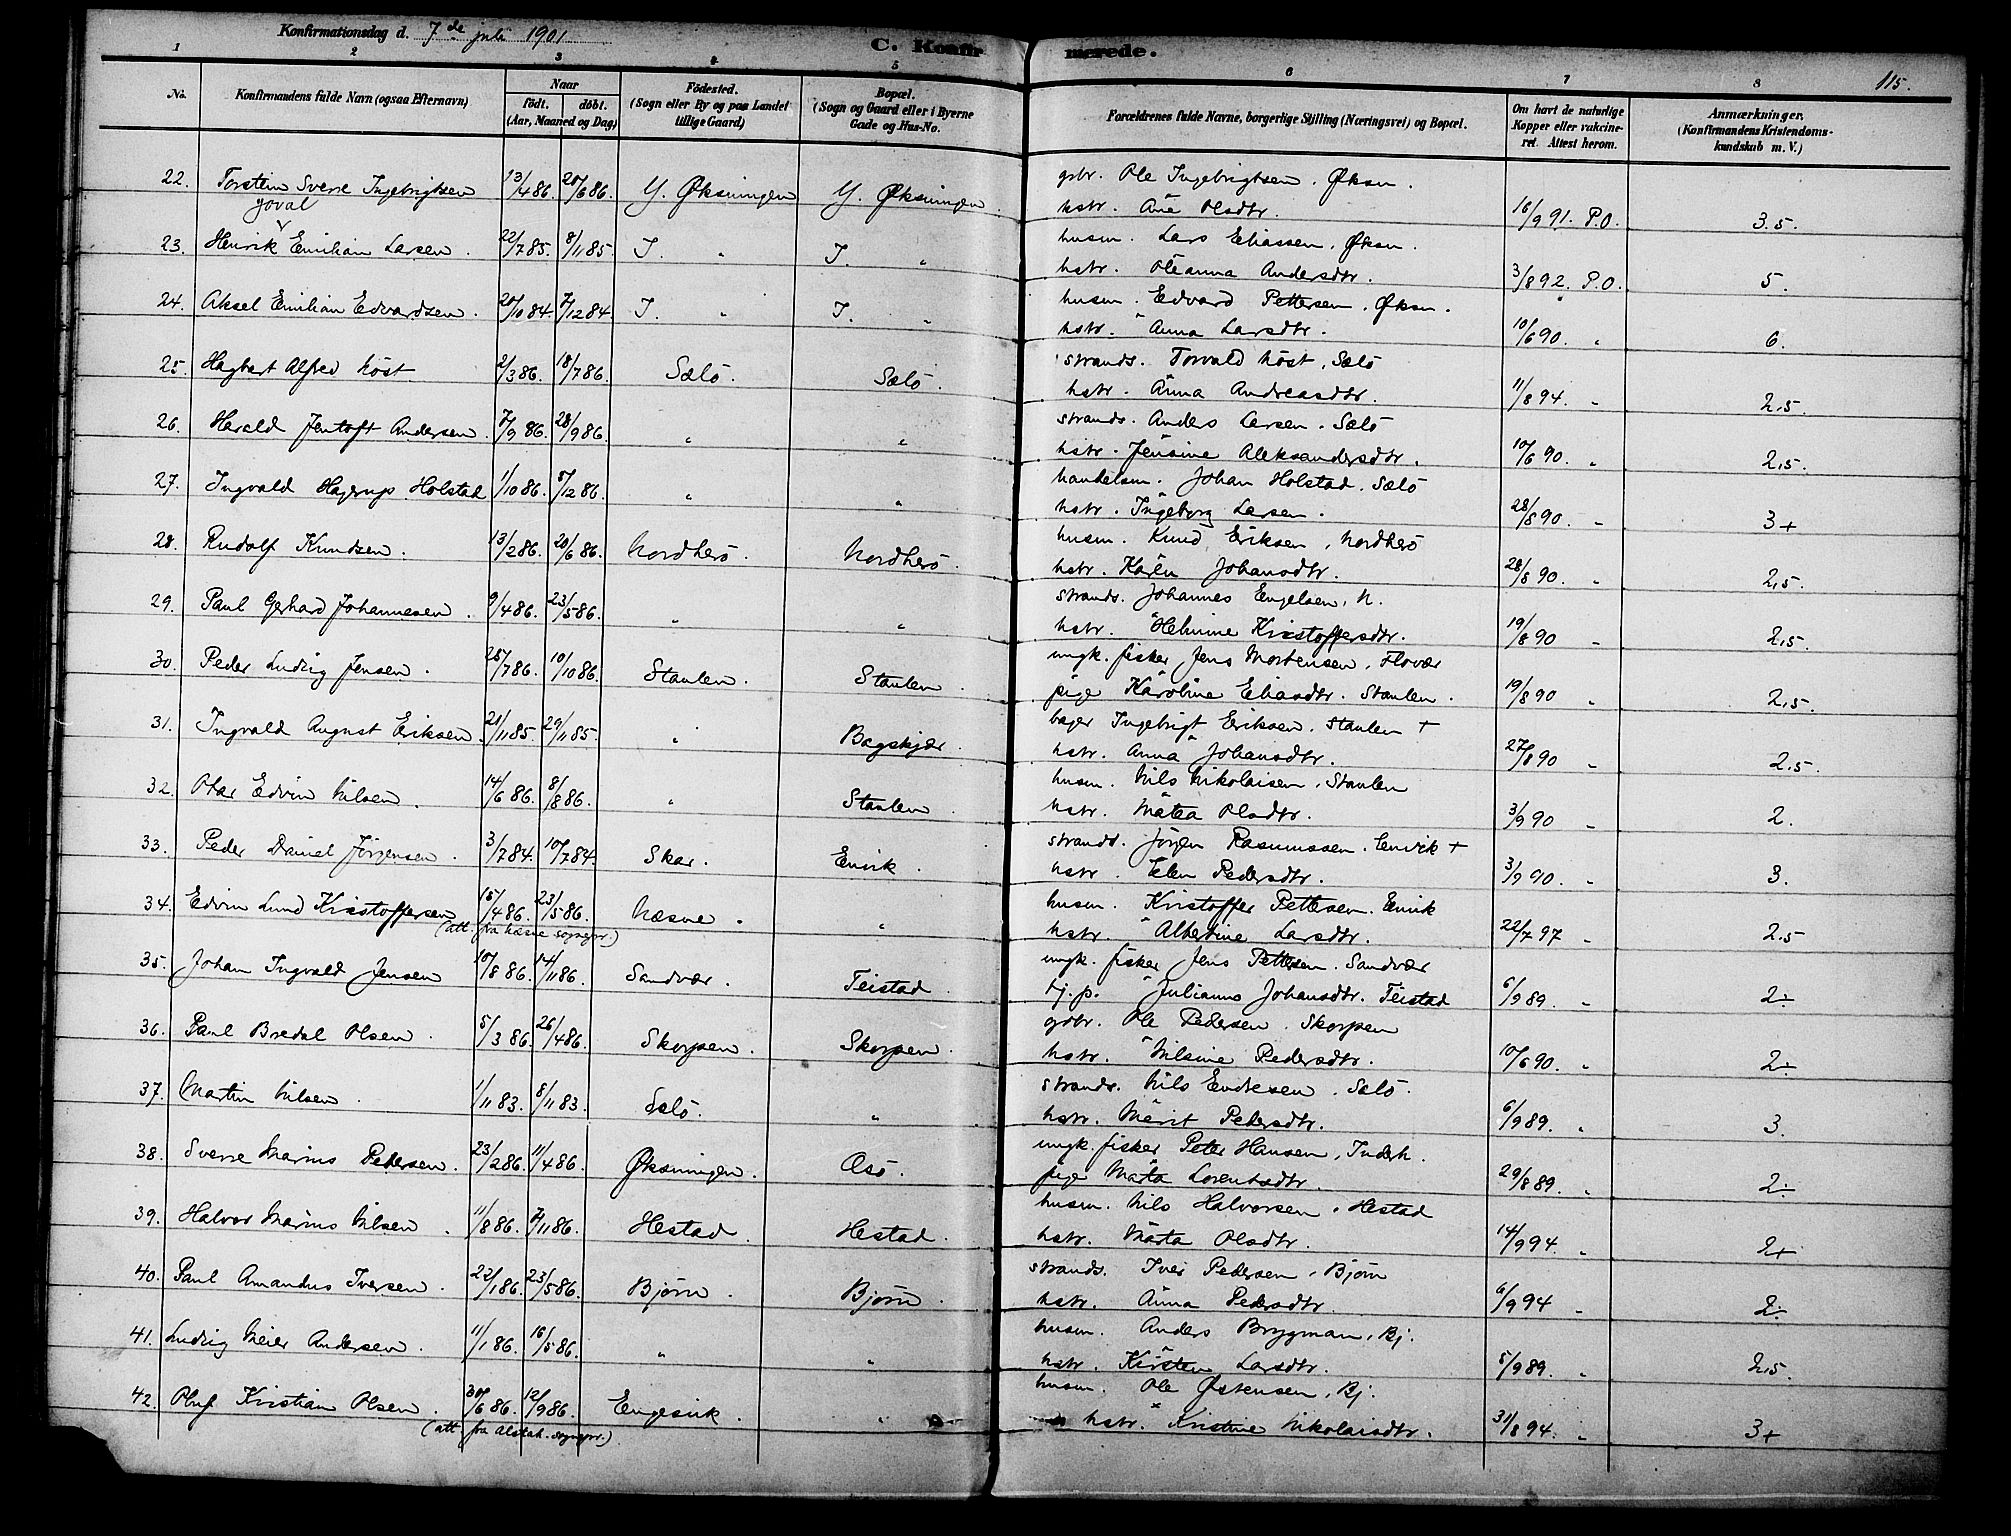 Konfirmationsdag d. 7de juli 1901
C. Konfirmerede.
115.
1 2 3 4 5 6 7 8
No. Konfirmandens fulde Navn (ogsaa Efternavn) Naar født. døbt. (Aar, Maaned og Dag) Fødested. (Sogn eller By og paa Landet tillige Gaard) Bopæl. (Sogn og Gaard eller i Byerne Gade og Hus-No. Forældrenes fulde Navne, borgerlige Stilling (Næringsvei) og Bopæl. Om havt de naturlige Kopper eller vakcineret. Attest herom. Anmærkninger. (Konfirmandens Kristendomskundskab m. V.)
22. Torstein Sverre Ingebrigtsen 13/4 86. 20/6 86. Y. Øksningen Y. Øksningen gbr. Ole Ingebrigtsen. Øksn.
hstr. Ane Olsdtr. 16/9 91. P.O. 3.5.
Joval
23. Henrik Emilian Larsen. 22/7 85. 8/11 85. I. " I. " husm. Lars Eliassen, Øksn.
hstr. Oleanna Andersdtr. 3/8 92. P.O. 5.
24. Aksel Emilian Edvardsen. 20/10 84. 7/12 84 I. " I. " husm. Edvard Pettersen, Øksn.
hstr. Anna Larsdtr. 10/6 90. " 6.
25. Hagbart Alfred Höst 2/3 86. 18/7 86. Sælö. Sælö. strands. Torvald Höst, Sælö
hstr. Anna Andreasdtr. 11/8 94. " 2.5.
26. Harald Jentoft Andersen. 7/9 86. 28/9 86. " " strands. Anders Larsen. Sælö
hstr. Jensine Aleksandersdtr. 10/6 90. " 2.5.
27. Ingvald Hagerup Holstad 1/10 86. 5/12 86. " " handelsm. Johan Holstad, Sælö
hstr. Ingeborg Larsen. 28/8 90. " 3+
28. Rudolf Knudsen. 13/2 86. 20/6 86. Nordherö. Nordherö. husm. Knud Eriksen, Nordherö
hstr. Karen Johansdtr. 28/8 90. " 2.5.
29. Paul Gerhard Johannesen. 9/4 86. 23/5 86. " " strands. Johannes Engelsen, N.
hstr. Helmine Kristoffersdtr. 19/8 90 " 2.5.
30. Peder Ludvig Jensen. 25/7 86. 10/10 86. Staulen. Staulen. ungk. fisker Jens Mortensen, Flovær
pige Karoline Eliasdtr. Staulen. 19/8 90 " 2.5.
31. Ingvald August Eriksen. 21/11 85. 29/11 85. " Bagskjær. Ingebrigt Eriksen. Staulen +
hstr. Anna Johansdtr. 27/8 90 " 2.5.
32. Olar Edvin Nilsen. 14/6 86. 8/8 86. " Staulen. husm. Nils Nikolaisen, Staulen
hstr. Matea Olsdtr. 3/9 90 " 2.
33. Peder Daniel Jörgensen. 3/7 84. 10/7 84. Skar. Envik. strands. Jörgen Rasmussen. Envik +
hstr. Elen Pedersdtr. 3/9 90. " 3.
34. Edvin Lund Kristoffersen 15/4 86. 23/5 86. Næsne. " husm. Kristoffer Pettersen. Envik
(att. fra Næsne sognepr.)
hstr. Albertine Larsdtr. 22/7 97 " 2.5
35. Johan Ingvald Jensen 10/8 86. 14/11 86. Sandvær. Teistad. ungk. fisker Jens Pettersen. Sandvær
tj.p. Julianna Johansdtr. Teistad 6/9 89. " 2÷
36. Paul Bredal Olsen. 5/3 86. 26/4 86. Skorpen. Skorpen. gbr. Ole Pedersen. Skorpen
hstr. Nilsine Pedersdtr. 10/6 90. " 2÷
37. Martin Nilsen. 1/11 83. 8/11 83. Sælö. " strands. Nils Endresen. Sælö.
hstr. Marit Pedersdtr. 6/9 89. " 3.
38. Sverre Marius Pedersen. 23/2 86. 11/4 86. Øksningen. Æsö. ungk. fisker Peter Hansen, Inderh.
pige Märta Lorentsdtr. 29/8 89. " 2÷
39. Halvor Marius Nilsen. 11/8 86. 7/11 86. Hestad. Hestad. husm. Nils Halvorsen, Hestad
hstr. Märta Olsdtr. 14/9 94. " 2+
40. Paul Amandus Iversen. 22/1 86. 23/5 86. Bjørn. Bjørn. strands. Iver Pedersen, Bjørn
hstr. Anna Pedersdtr. 6/9 94 " 2÷
41. Ludvig Meier Andersen. 11/1 86. 16/5 86. " " husm. Anders Brygman, Bj.
hstr. Kirsten Larsdtr. 5/9 89. " 2.5
42. Oluf Kristian Olsen. 30/6 86. 12/9 86. Engesvik. " husm. Ole Østensen, Bj.
(att. fra Alstah. sognepr.)
hstr. Kristine Nikolaisdtr. 31/8 94. " 3+